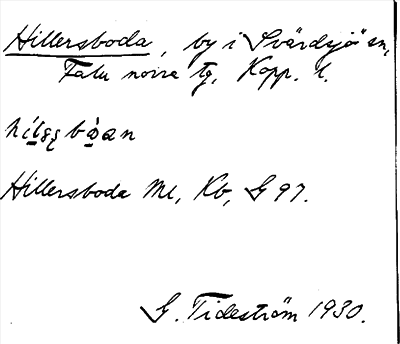 Hillersboda, by i Svärdsjö sn,
Falu norra tg, Kopp. l.
Hillersboda Ml, Kb, G 97.
G. Tideström 1930.